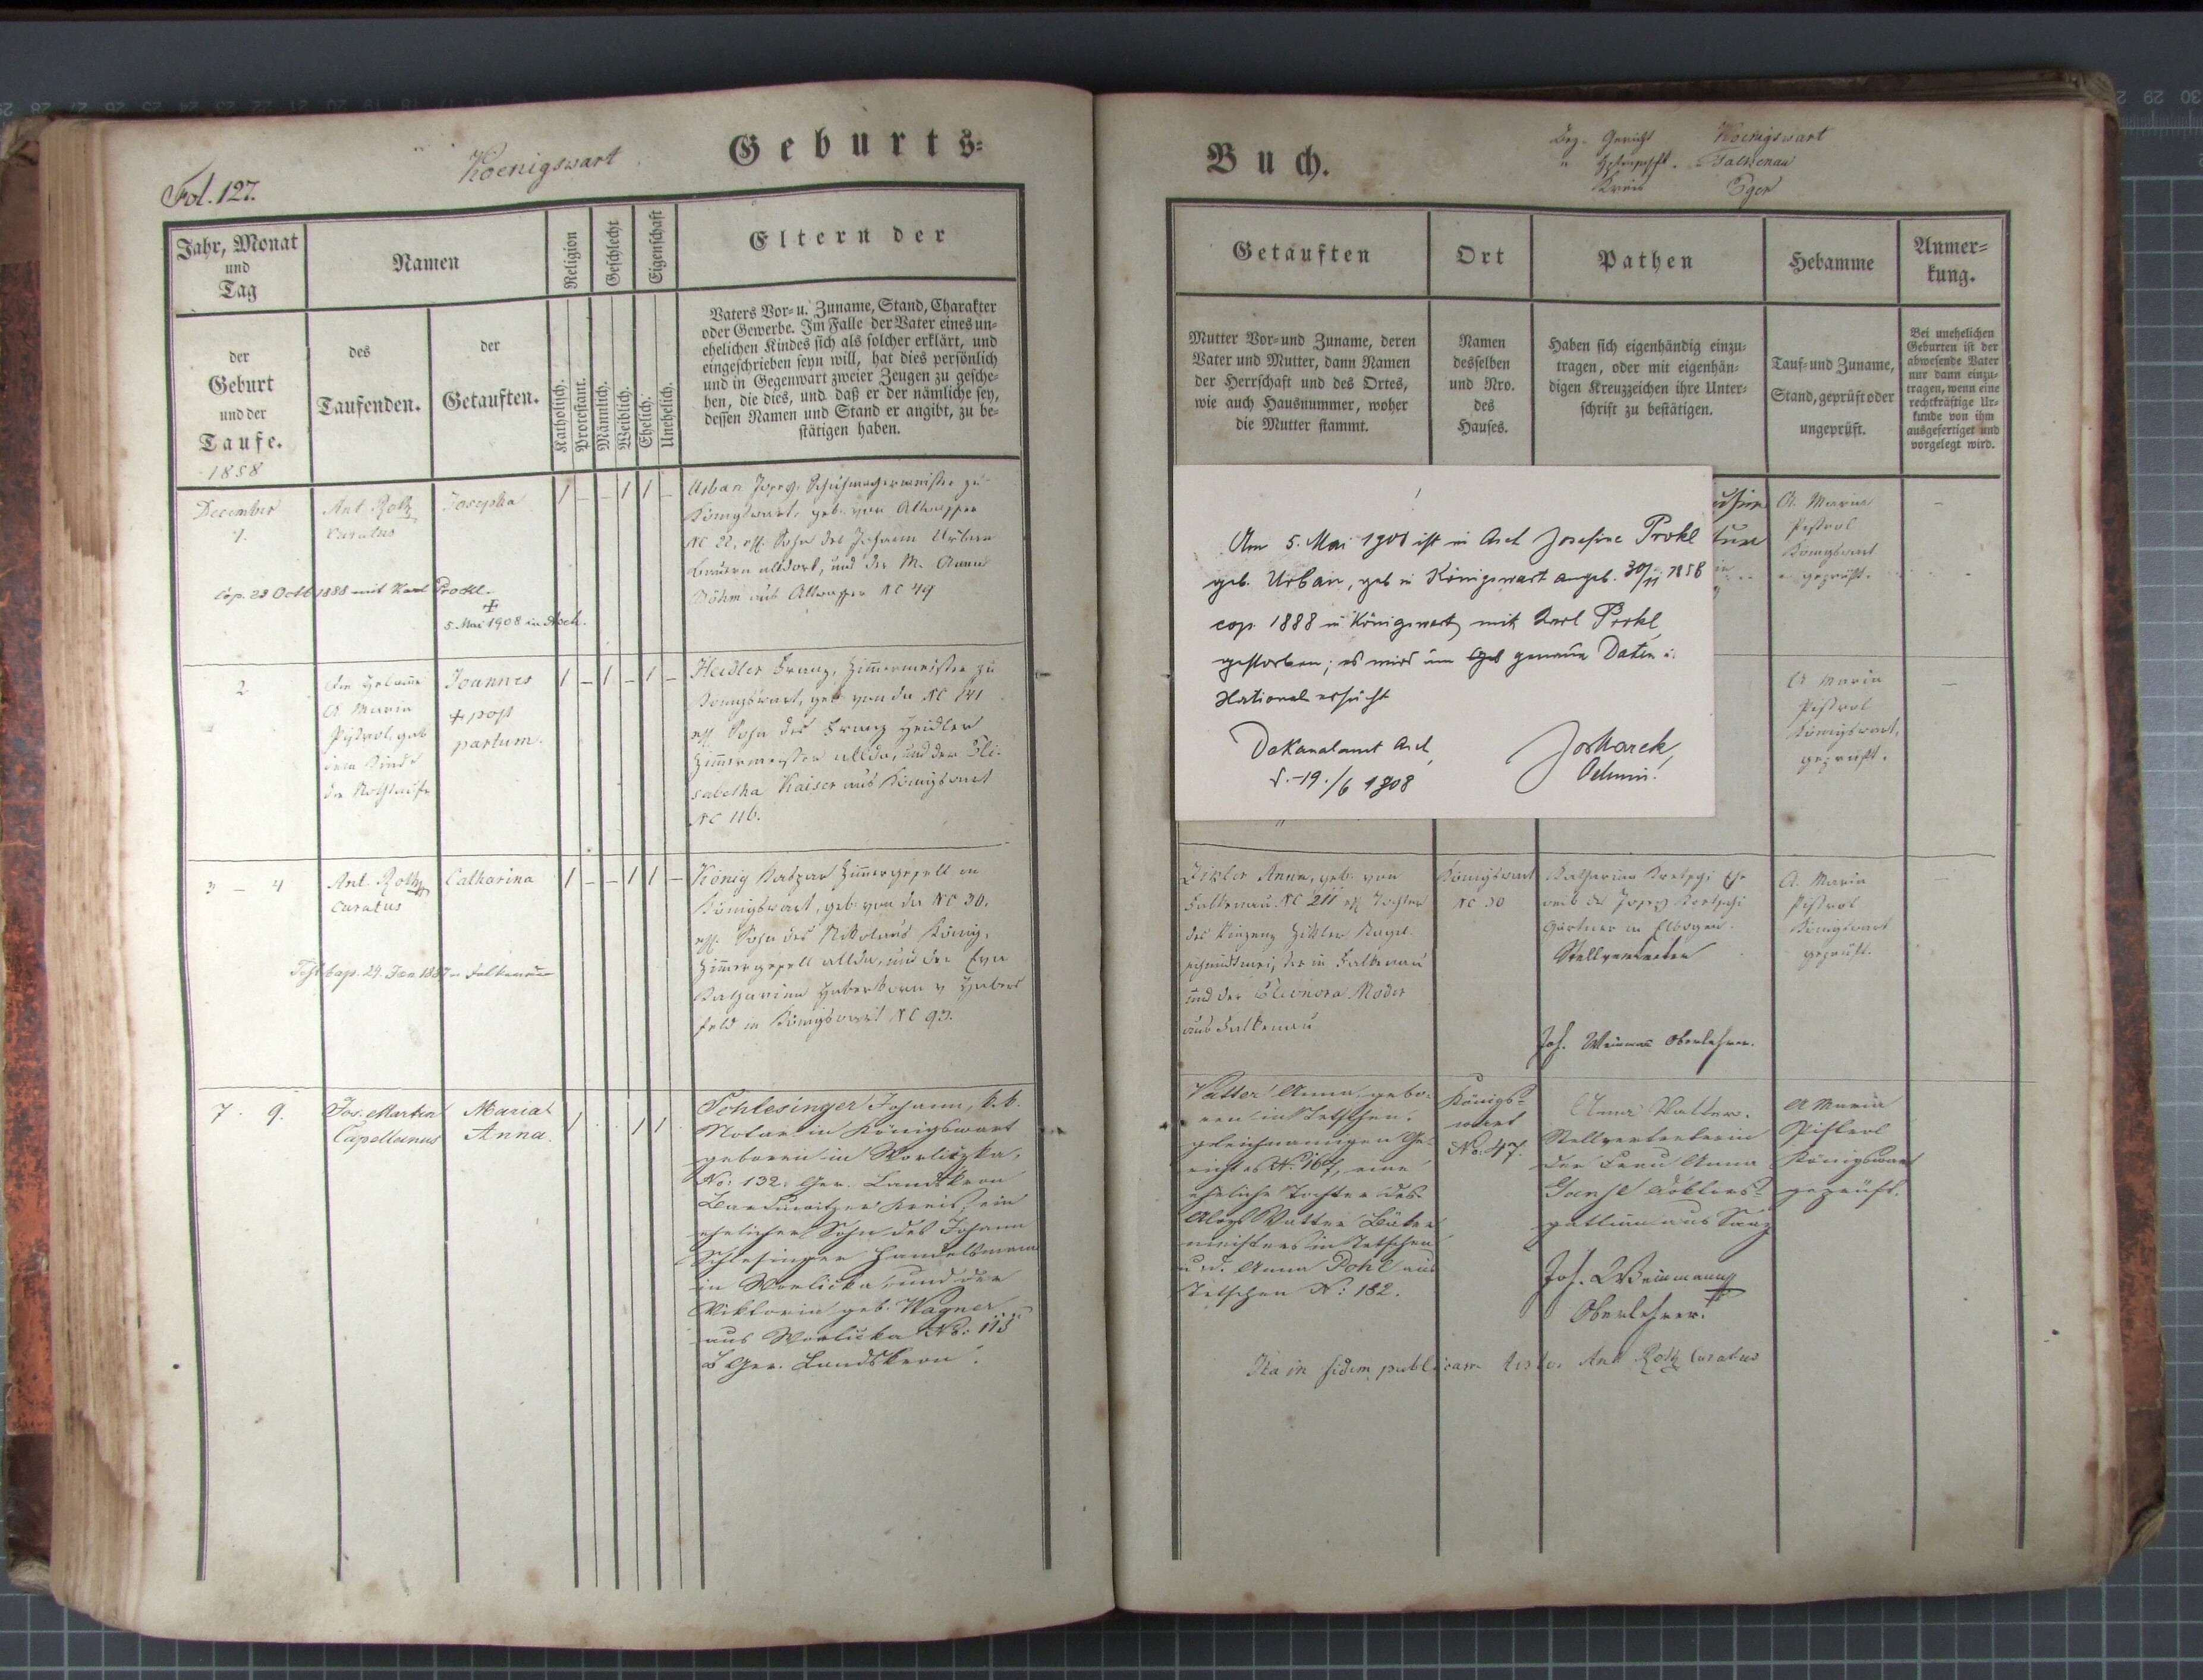 Geburts-
Koenigswart
Fol. 127.
Jahr, Monat
und
Tag
der
Geburt
und der
Taufe.
1858
Namen
des
Taufenden.
der
Getauften.
Religion
Geschlecht
Eigenschaft
Katholisch.
Protestant.
Männlich.
Weiblich.
Ehelich.
Unehelich.
Eltern der
Vaters Vor- u. Zuname, Stand, Charakter
oder Gewerbe. Im Falle der Vater eines un-
ehelichen Kindes sich als solcher erklärt, und
eingeschrieben seyn will, hat dies persönlich
und in Gegenwart zweier Zeugen zu gesche-
hen, die dies, und daß er der nämliche sey,
dessen Namen und Stand er angibt, zu be-
stätigen haben.
December
1.
Ant. Roth
Curatus
Josepha
1 – – 1 1 –
Urban Joseph, Schuhmachermeister zu
Königswart, geb. von Altwasser
NC 22, ehl. Sohn des Johann Urban
Bauern alldort, und der M. Anna
Böhm aus Altwasser NC 49
cop. 23 Octb 1888 mit Karl Prokl.
+
5. Mai 1908 in Asch.
2
A Maria
Pistrol, gab
dem Kinde
die Nothtaufe
Joannes
+ post
partum.
1 – 1 – 1 –
Heidler Franz, Zimmermeister zu
Königswart, geb. von da NC 141
ehl. Sohn des Franz Heidler
Zimmermeister allda, und der Eli-
sabetha Kaiser aus Königswart
NC 116.
3 – 4
Ant. Roth
Curatus
Catharina
1 – – 1 1 –
König Kaspar Zimmergesell in
Königswart, geb. von da NC 30.
ehl. Sohn des Nikolaus König,
Zimmergesell allda, und der Eva
Katharina Haberkorn v Haber
feld in Königswart NC 93.
cap. 29. Jan 1887 in Falkenau
7. 9.
Jos. Martin
Capellanus
Maria
Anna.
1 . . 1 1 .
Schlesinger Johann, k.k.
Notar in Königswart
geboren in Worlitzka,
No: 132. Ger. Landskron
ehelicher Sohn des Johann
Schlesinger Handelsmann
in Worlicka und der
Viktoria geb. Wagner
aus Worlicka No: 115
Ger. Landskron.
Buch.
Bez. Gericht Koenigswart
Falkenau
Kreis Eger
Getauften
Mutter Vor- und Zuname, deren
Vater und Mutter, dann Namen
der Herrschaft und des Ortes,
wie auch Hausnummer, woher
die Mutter stammt.
Ort
Namen
desselben
und Nro.
des
Hauses.
Pathen
Haben sich eigenhändig einzu-
tragen, oder mit eigenhän-
digen Kreuzzeichen ihre Unter-
schrift zu bestätigen.
Hebamme
Tauf- und Zuname,
Stand, geprüft oder
ungeprüft.
Anmer-
kung.
Bei unehelichen
Geburten ist der
abwesende Vater
nur dann einzu-
tragen, wenn eine
rechtkräftige Ur-
kunde von ihm
ausgefertiget und
vorgelegt wird.
Am 5. Mai 1908 ist in Asch Josefine Prokl
geb. Urban, geb in Königswart angeb. 30/11 1858
cop. 1888 in Königswart mit Karl Prokl
gestorben; es wird um genaue Daten u.
National ersucht
Dekanalamt Asch
d. 19./6 1908
A. Maria
Pistrol
Königswart
geprüft.
A Maria
Pistrol
Königswart,
geprüft.
Zikler Anna, geb. von
Falkenau NC 211 ehl Tochter
des Vinzenz Zikler Nagel
schmidtmeister in Falkenau
und der Eleonora Moder
aus Falkenau
Königswart
NC 30
Katharina Kretschi Ehe
weib des Joseph Kretschi
Gärtner in Elbogen.
Stellvertreten
Joh. Weinmann Oberlehrer.
A. Maria
Pistrol
Königswart
geprüft.
Vatter Anna, gebo-
ren in Tetschen
gleichnamigen Ge-
richtes N: 167, eine
eheliche Tochter des
Aloys Vatter
meisters in Tetschen
u. d. Anna Pohl aus
Tetschen N: 182.
Königs-
wart
No: 47.
Anna Vatter.
Stellvertreterin
der Frau Anna
Doktors-
gattin aus Saaz
Joh. Weinmann
Oberlehrer.
A Maria
Pistrol
Königswart
geprüft.
Ita in fidem publicam testor Ant Roth Curatus